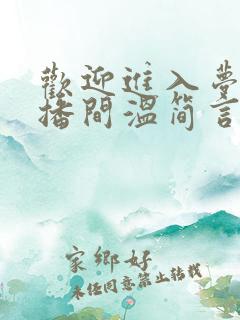 歡迎進入夢
播間溫简言
家鄉好
未经同意禁止转载